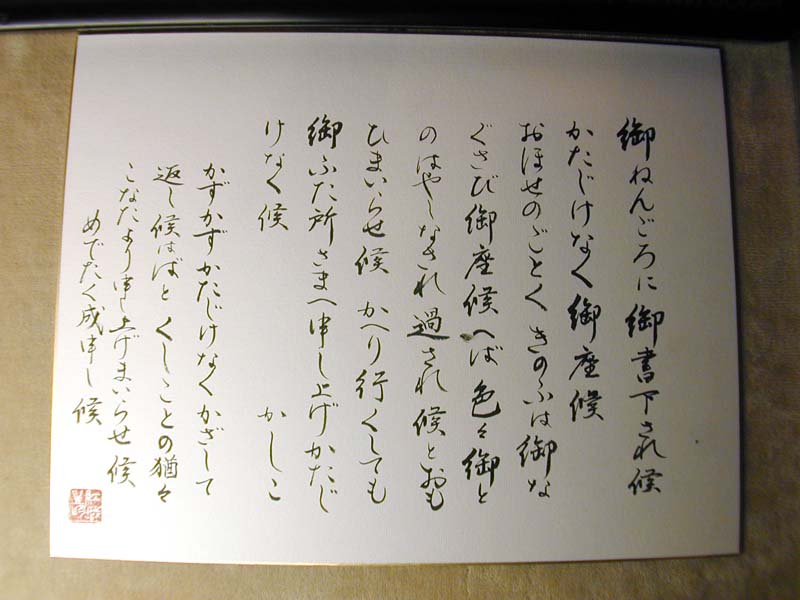 御ねんごろに御書下され候
かたじけなく御座候
おほせのごとくきのふは御な
ぐさび御座候へば色々御と
のはやしなされ過され候とおも
ひまいらせ候 かへり行くしても
御ふた所さまへ申し上げかたじ
けなく候 かしこ
かずかずかたじけなくかざして
返し候はばとくしことの猶々
こなたより申し上げまいらせ候
めでたく成申し候